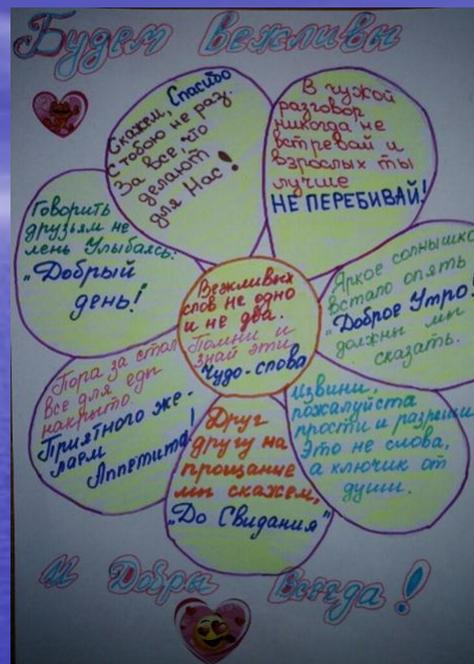 Будем вежливы
Скажем, Спасибо
с тобою не раз.
За все, что
делают
для Нас!
В чужой
разговор
никогда не
встревай и
взрослых ты
лучше
НЕ ПЕРЕБИВАЙ!
Говорить
друзьям не
лень Улыбаясь:
"Добрый
день!
Вежливых
слов не одно
и не два.
Помни и
знай эти
Чудо-слова
Яркое солнышко
встало опять
"Доброе Утро!
должны мы
сказать.
Пора за стол
все для еды
накрыто.
Приятного же-
лаем
Аппетита!
Друг
другу на
прощание
мы скажем,
"До Свидания"
Извини,
пожалуйста
прости и разреши
Это не слова,
а ключик от
души.
И Добры Всегда!